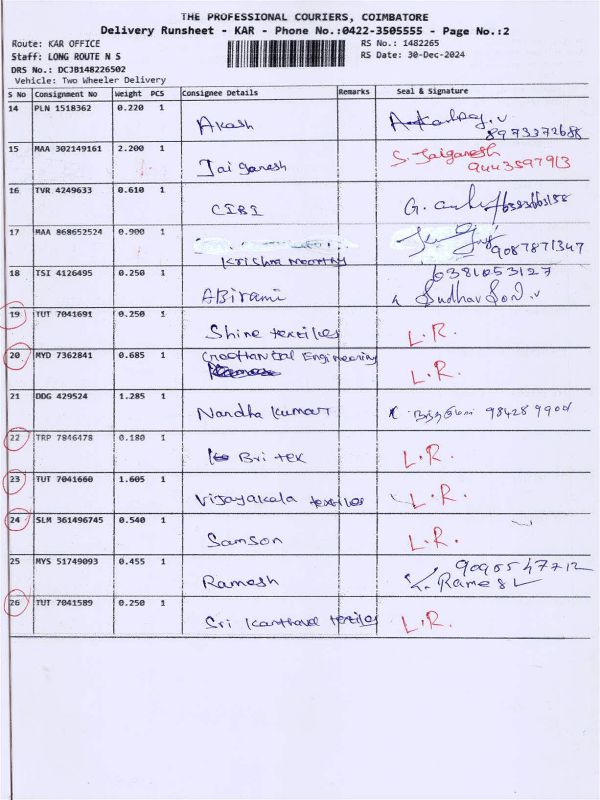 THE PROFESSIONAL COURIERS, COIMBATORE
Delivery Runsheet - KAR - Phone No.:0422-3505555 - Page No.:2
Route: KAR OFFICE
RS No.: 1482265
Staff: LONG ROUTE N S
RS Date: 30-Dec-2024
DRS No.: DCJB148226502
Vehicle: Two Wheeler Delivery
S No Consignment No Weight PCS Consignee Details Remarks Seal & Signature
14 PLN 1518362 0.220 1
Akash
8973372688
15 MAA 302149161 2.200 1
Jai Ganesh S. Jaiganesh
9443597913
16 TVR 4249633 0.610 1
CIBI
17 MAA 868652524 0.900 1
Krishna moorthy 9087871347
18 TSI 4126495 0.250 1 6381053127
ABirami
19 TUT 7041691 0.250 1
Shine textiles L.R.
20 MYD 7362841 0.685 1 Engineering
L.R.
21 DDG 429524 1.285 1
Nandha Kumar
22 TRP 7846478 0.180 1
Bri tex L.R.
23 TUT 7041660 1.605 1
Vijayakala textiles L.R.
24 SLM 361496745 0.540 1
Samson L.R.
25 MYS 51749093 0.455 1
Ramesh K. Ramesh
26 TUT 7041589 0.250 1
Sri textiles L.R.